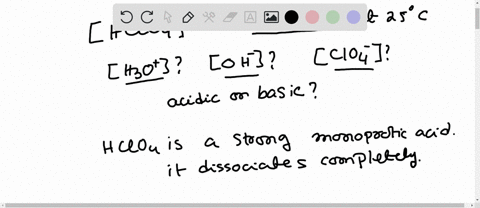 t 25°C
[H3O+]? [OH-]? [ClO4-]?
acidic or basic?
HClO4 is a strong monoprotic acid.
it dissociates completely.